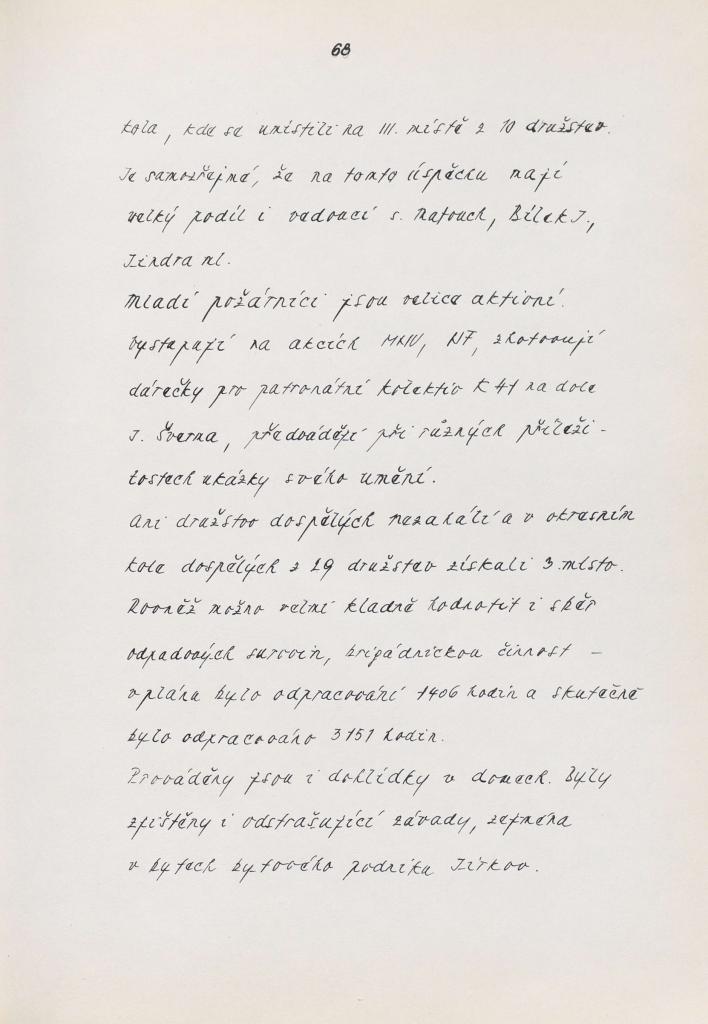 68
kola, kde se umístili na III. místě z 10 družstev.
Je samozřejmé, že na tomto úspěchu mají
velký podíl i vedoucí s. Matouch, Bílek J.,
Jindra ml.
Mladí požárníci jsou velice aktivní.
Vystupují na akcích MNV, NF, zhotovují
dárečky pro patronátní kolektiv K 41 na dole
J. Šverma, předvádějí při různých příleži-
tostech ukázky svého umění.
Ani družstvo dospělých nezahálí a v okresním
kole dospělých z 29 družstev získali 3. místo.
Rovněž možno velmi kladně hodnotit i sběr
odpadových surovin, brigádnickou činnost –
v plánu bylo odpracování 1406 hodin a skutečně
bylo odpracováno 3151 hodin.
Prováděny jsou i dohlídky v domech. Byly
zjištěny i odstrašující závady, zejména
v bytech bytového podniku Jirkov.